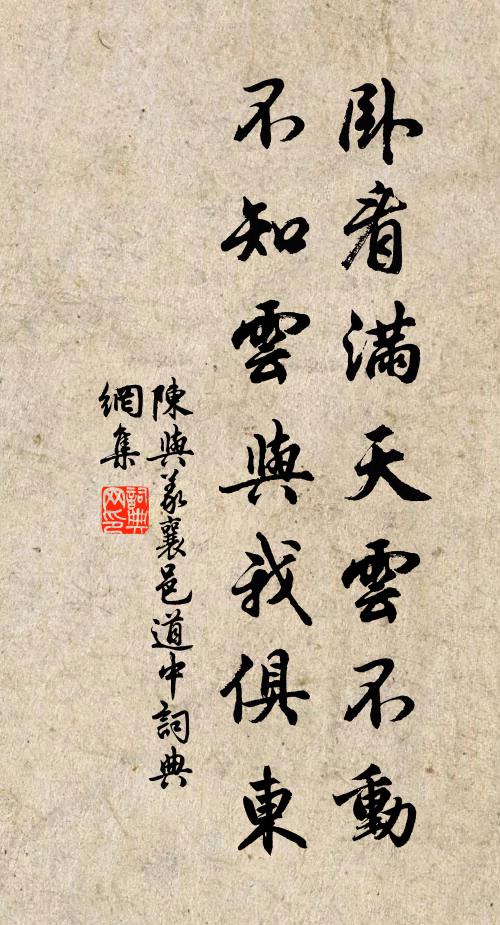 卧看滿天雲不動
不知雲與我俱東
陳與義襄邑道中詞典
網集
詞典
网印